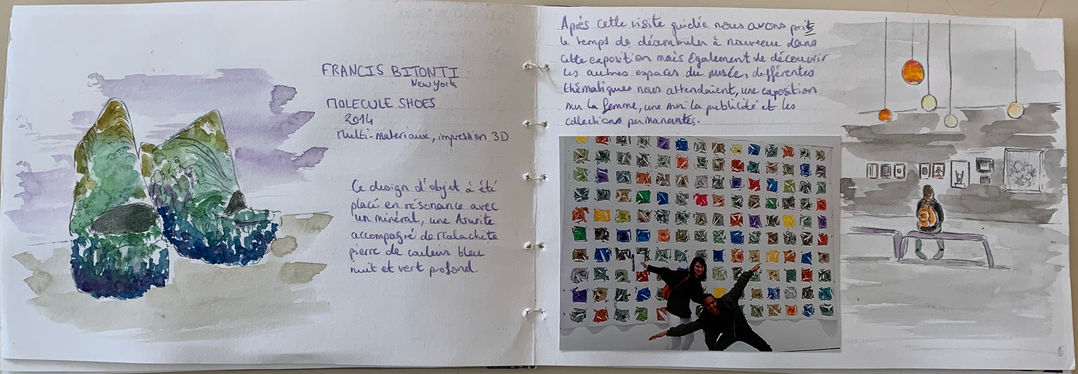 FRANCIS BITONTI
New York
MOLECULE SHOES
2014
Multi-materiaux, impression 3D
Ce design d'objet à été
placé en résonance avec
un minéral, une Azurite
accompagné de Malachite
pierre de couleur bleu
nuit et vert profond.
Après cette visite guidée nous avons pris
le temps de déambuler à nouveau dans
cette exposition mais également de découvrir
les autres espaces du musée, différentes
thématiques nous attendaient, une exposition
sur la femme, une sur la publicité et les
collections permanentes.